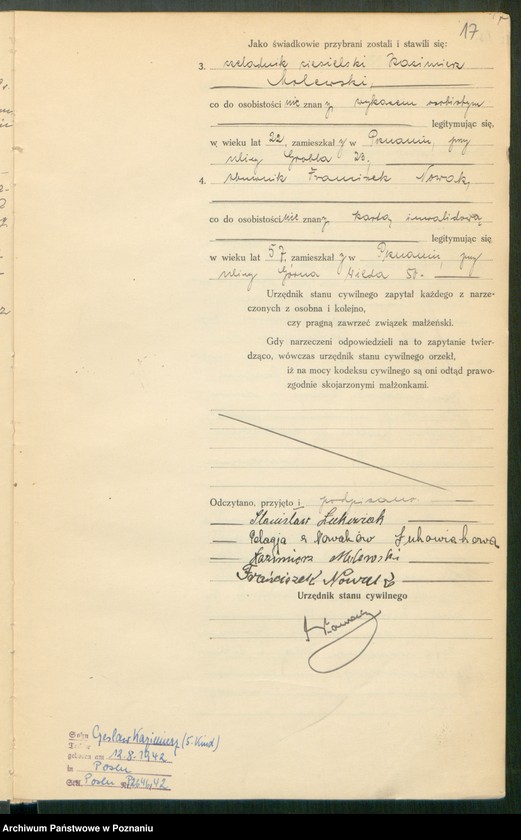 17
Jako świadkowie przybrani zostali i stawili się:
3. czeladnik ciesielski Kazimierz
Molewski,
co do osobistości nie znany, wykazem osobistym
legitymując się,
w wieku lat 22, zamieszkały w Poznaniu, przy
ulicy Grobla 23,
4. Franciszek Nowak,
co do osobistości nie znany kartą inwalidową
legitymując się
w wieku lat 57, zamieszkały w Poznaniu, przy
ulicy Górna Wilda 51.
Urzędnik stanu cywilnego zapytał każdego z narze-
czonych z osobna i kolejno,
czy pragną zawrzeć związek małżeński.
Gdy narzeczeni odpowiedzieli na to zapytanie twier-
dząco, wówczas urzędnik stanu cywilnego orzekł,
iż na mocy kodeksu cywilnego są oni odtąd prawo-
zgodnie skojarzonymi małżonkami.
Odczytano, przyjęto i podpisano
Stanisław Łukowiak
Pelagja z Nowaków Łukowiakowa
Kazimierz Molewski
Franciszek Nowak
Urzędnik stanu cywilnego
Sohn Czesław Kazimierz (5. Kind)
geboren am 12.8.1942
in Posen
StA Posen
Archiwum Państwowe w Poznaniu